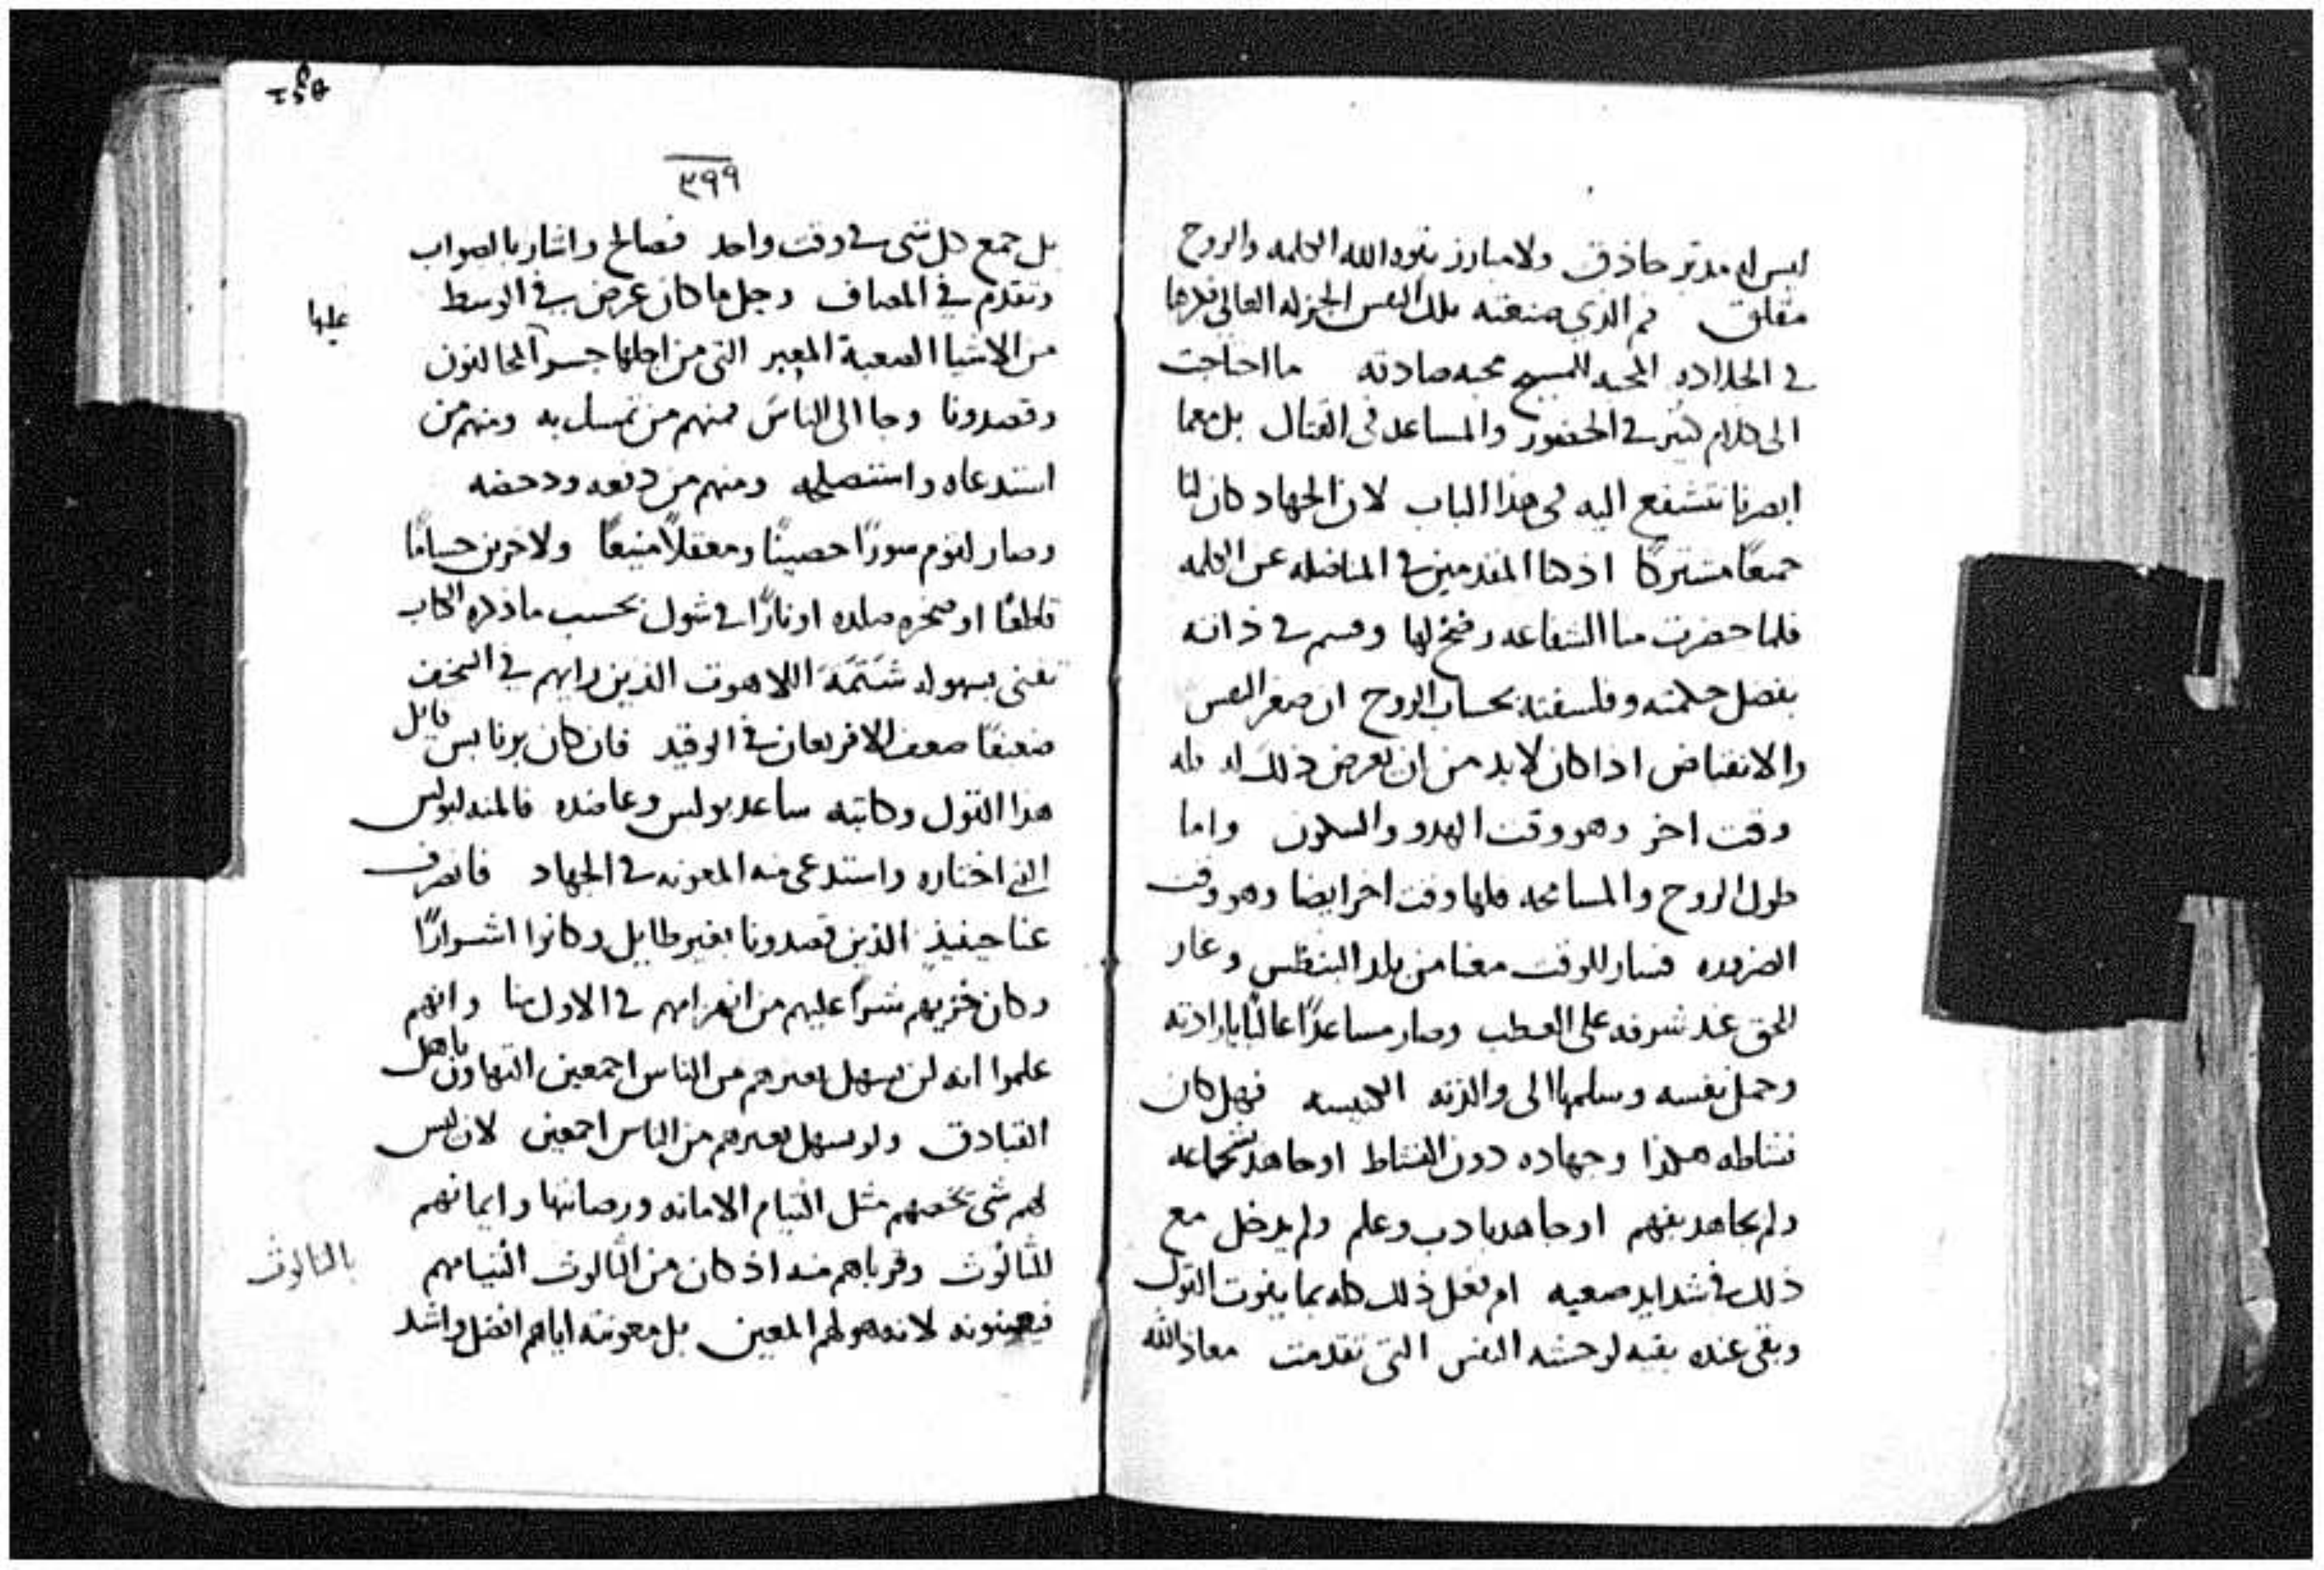 ليس له مدبر حاذق ولا مبارز بقوه الله الكلمه والروح
مقلق ثم الذي صنعته تلك النفس الجزله العالي قدرها
في الجلاده المحبه المسيح محبه صادقه ما احتاجت
الى كلام كثير في الحضور والمساعد في القتال بل معما
ابصرنا نتشفع اليه في هذا الباب لان الجهاد كان لنا
جميعًا مشتركًا اذ كنا المقدمين في المناضله عن الكلمه
فلما حضرت منا الشفاعه رضخ لها وقسم في ذاته
بفضل حكمته وفلسفته بحساب الروح ان صغر النفس
والانقباض اذا كان لابد من ان يعرض ذلك له فله
وقت اخر وهو وقت الهدو والسكون واما
طول الروح والمسامحه فلها وقت اخر ايضا وهو وقت
الضروره فسار للوقت معنا من بلد البنطس وغار
للحق عند شرفه على العطب وصار مساعدًا عالنًا بارادته
وحمل نفسه وسلمها الى والدته الكنيسه فهل كان
نشاطه هكذا وجهاده دون النشاط او جاهد بشجاعه
ولم يجاهد بفهم او جاهد بادب وعلم ولم يدخل مع
ذلك في شدايد صعبه ام فعل ذلك كله بما يفوت القول
وبقى عنده بقيه لوحشه النفس التي تقدمت معاذ الله
٣٩٩
بل جمع كل شي في وقت واحد فصالح واشار بالصواب
وتقدم في المصاف وجل ما كان عرض في الوسط
من الاشيا الصعبة المعبر التي من اجلها جسر المخالفون
عليها
وقصدونا وجا الى الناس فمنهم من تمسك به ومنهم من
استدعاه واستصلحه ومنهم من دفعه ودحضه
وصار لقوم سورًا حصينًا ومعقلًا منيعًا ولاخرين حسامًا
قاطعًا او صخره صلده او نارًا في شوك بحسب ما ذكره الكتاب
تفنى بسهوله شَتَمَةَ اللاهوت الذين رايهم في السخف
ضعيفًا ضعف الافريعان في الوقيد فان كان برنابس قايل
هذا القول وكاتبه ساعد بولس وعاضده فالمنه لبولس
الذي اختاره واستدعى منه المعونه في الجهاد فانصرف
عنا حينيذٍ الذين قصدونا بغير طايل وكانوا اشرارًا
وكان خزيهم شرًا عليهم من انهزامهم في الاول منا وانهم
علموا انه لن يسهل بغيرهم من الناس اجمعين التهاون باهل
القبادق ولو سهل بغيرهم من الناس اجمعين لان ليس
لهم شي يخصهم مثل التيام الامانه ورصانتها وايمانهم
للثالوث وقرباهم منه اذ كان من الثالوث التيامهم
بالثالوث
فيعينونه لانه هو لهم المعين بل معونته اياهم افضل واشد